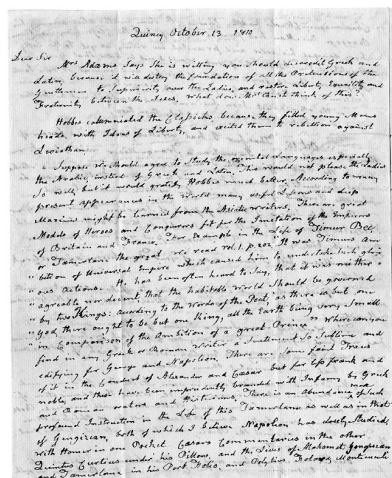 Quincy October 13. 1810
Dear Sir
Mrs Adams Says She is willing you Should discredit Greek and
Latin, because it will destroy the foundation of all the Pretensions of the
Gentlemen to Superiority over the Ladies, and restore Liberty, Equality and
Fraternity between the Sexes. What does Mrs Rush think of this?
Hobbes calumniated the Classicks because they filled young Mens
heads with Ideas of Liberty, and excited them to rebellion against
Leviathan.
Suppose We Should agree to Study the oriental Languages especially
the Arabic, instead of Greek and Latin. This would not please the Ladies
So well, but it would gratify Hobbes much better. According to many
present appearances in the World many useful Lessons and deep
Maxims might be learned from the Asiatic Writers. There are great
Models of Heroes and Conquerors fit for the Imitation of the Emperors
of Britain and France. For Example in the Life of Timur Bec,
or Tamerlane the great we read Vol. 1. p. 202. "It was Timurs Am
"bition of Universal Empire which caused him to undertake Such glori
"ous Actions. He has been often heard to Say, that it was neither
"agreable nor decent that the habitable World Should be governed
"by two Kings: According to the Words of the Poet, as there is but one
"God there ought to be but one King, all the Earth being very Small
in Comparison of the Ambition of a great Prince." Where can you
find in any Greek or Roman Writer a Sentiment So Sublime and
edifying for George and Napoleon. There are Some faint Traces
of it in the Conduct of Alexander and Cæsar but far less frank and
noble, and these have been imprudently branded with Infamy by Greek
and Roman orators and Historians. There is an Abundance of Such
profound Instruction in the Life of this Tamerlane as well as in that
of Gengizcan, both of which I believe Napoleon has closely Studied.
With Homer in one Pocket Cæsars Commentaries in the other
Quintus Curtius under his Pillow, and the Lives of Mahomet Gengizcan
and Tamerlane in his Port Folio, and Polybius Folard, Montecuculi